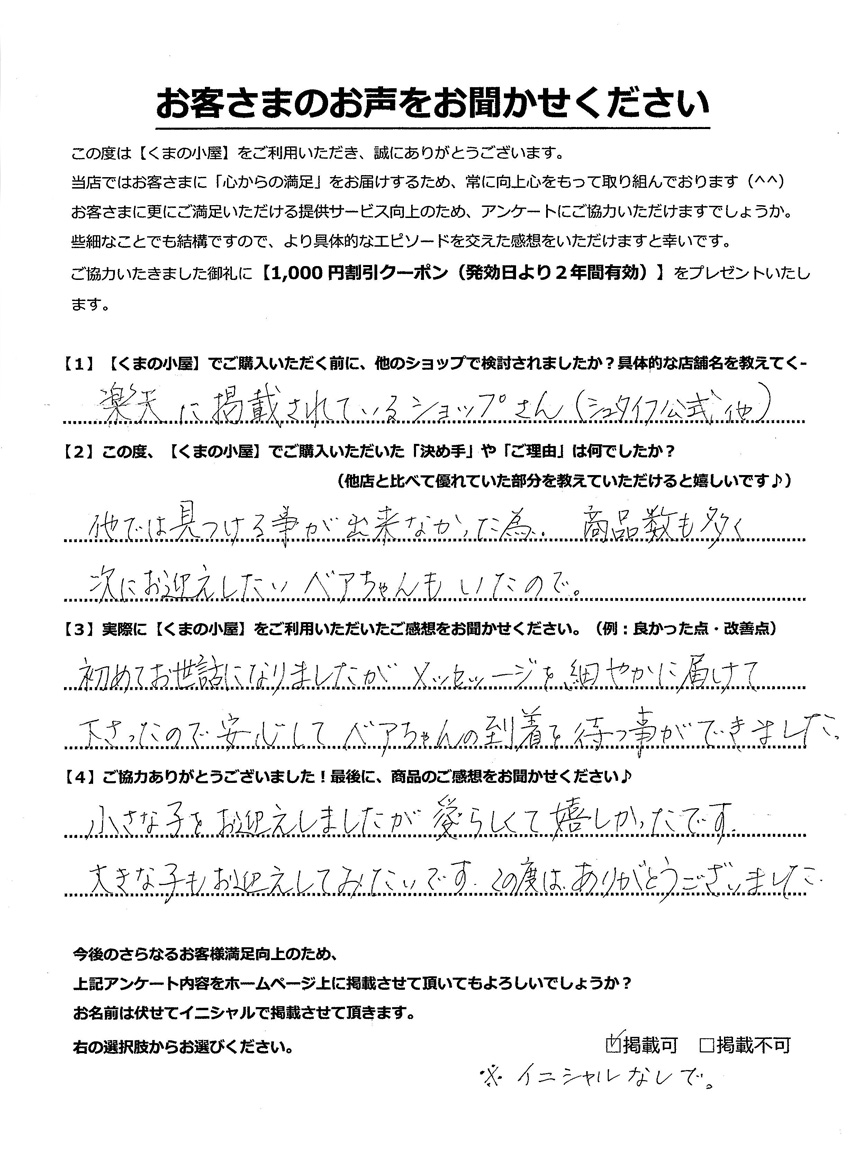 お客さまのお声をお聞かせください
この度は【くまの小屋】をご利用いただき、誠にありがとうございます。
当店ではお客さまに「心からの満足」をお届けするため、常に向上心をもって取り組んでおります（^^）
お客さまに更にご満足いただける提供サービス向上のため、アンケートにご協力いただけますでしょうか。
些細なことでも結構ですので、より具体的なエピソードを交えた感想をいただけますと幸いです。
ご協力いたきました御礼に【1,000 円割引クーポン（発効日より２年間有効）】をプレゼントいたし
ます。
【１】【くまの小屋】でご購入いただく前に、他のショップで検討されましたか？具体的な店舗名を教えてく-
楽天に掲載されているショップさん（シュタイフ公式、他）
【２】この度、【くまの小屋】でご購入いただいた「決め手」や「ご理由」は何でしたか？
（他店と比べて優れていた部分を教えていただけると嬉しいです♪）
他では見つける事が出来なかった為。商品数も多く
次にお迎えしたいベアちゃんもいたので。
【３】実際に【くまの小屋】をご利用いただいたご感想をお聞かせください。（例：良かった点・改善点）
初めてお世話になりましたがメッセッージを、細やかに届けて
下さったので安心してベアちゃんの到着を待つ事ができました。
【４】ご協力ありがとうございました！最後に、商品のご感想をお聞かせください♪
小さな子をお迎えしましたが愛らしくて嬉しかったです。
大きな子もお迎えしてみたいです。この度はありがとうございました。
今後のさらなるお客様満足向上のため、
上記アンケート内容をホームページ上に掲載させて頂いてもよろしいでしょうか？
お名前は伏せてイニシャルで掲載させて頂きます。
右の選択肢からお選びください。 ☑掲載可 □掲載不可
※イニシャルなしで。